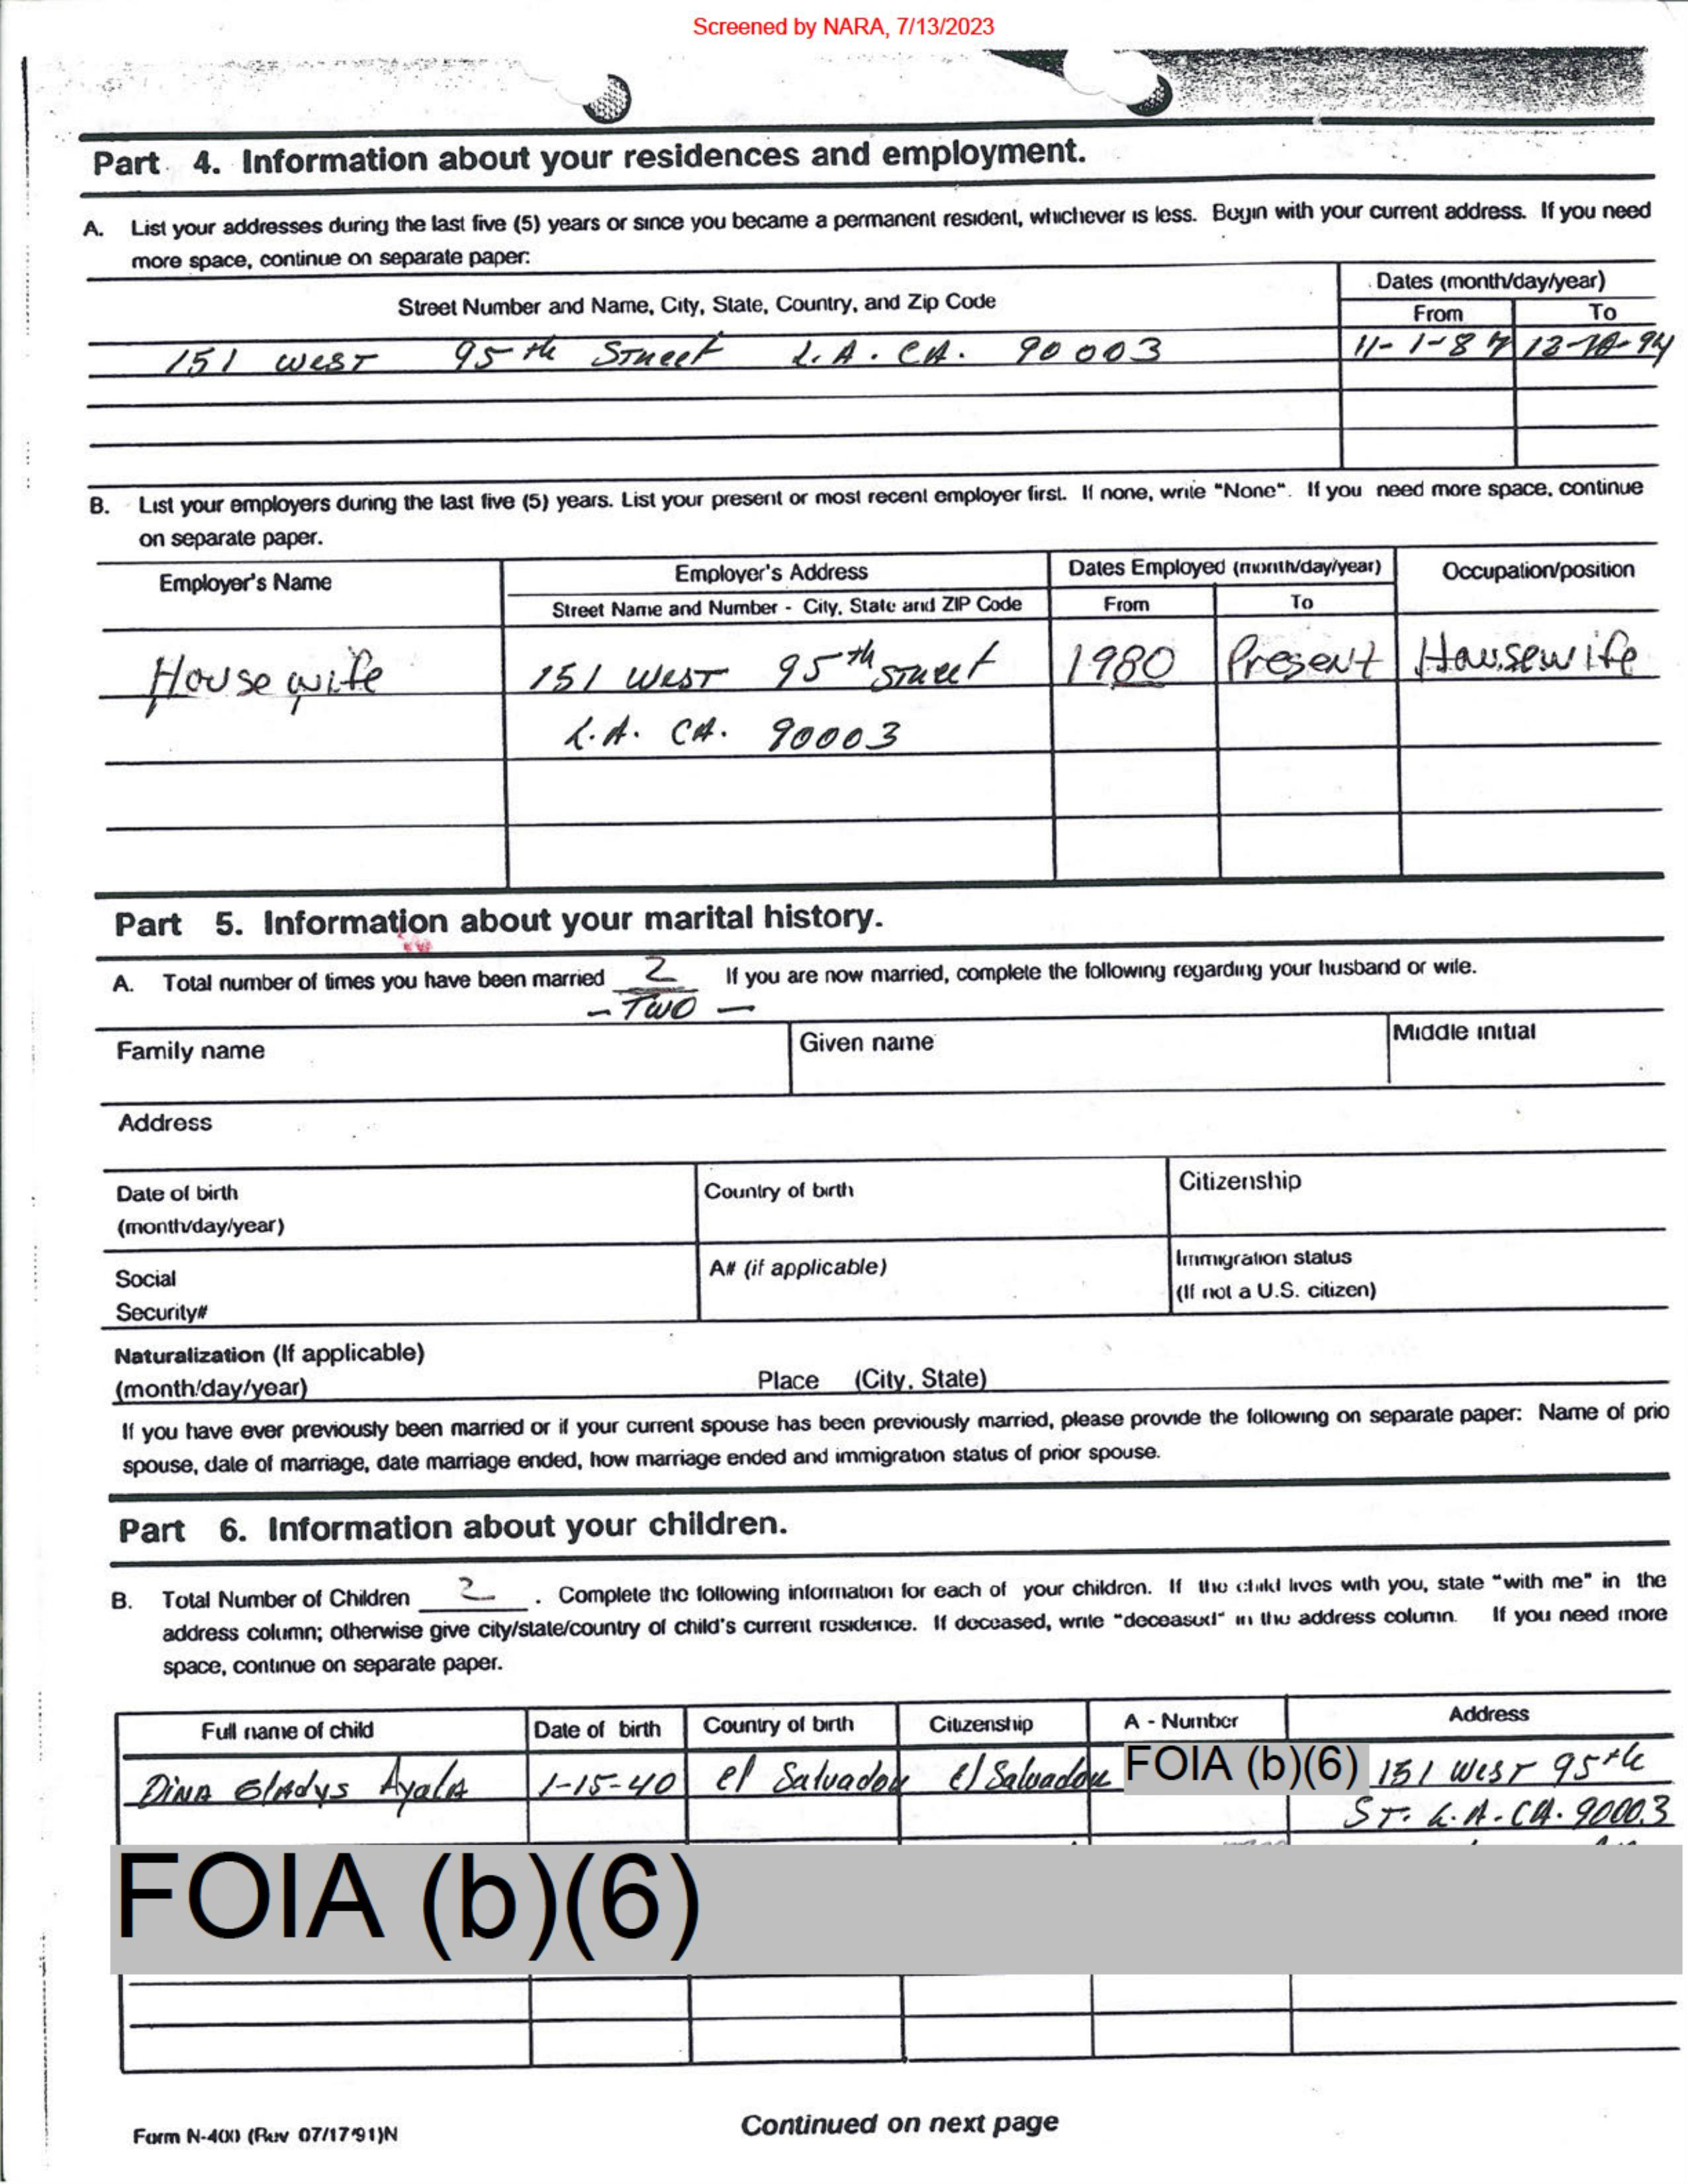 Screened by NARA, 7/13/2023
Part 4. Information about your residences and employment.
A. List your addresses during the last five (5) years or since you became a permanent resident, whichever is less. Begin with your current address. If you need
more space, continue on separate paper:
Street Number and Name, City, State, Country, and Zip Code
Dates (month/day/year)
From To
151 WEST 95th Street L.A. CA. 90003 11-1-87
B. List your employers during the last five (5) years. List your present or most recent employer first. If none, write "None". If you need more space, continue
on separate paper.
Employer's Name Employer's Address Dates Employed (month/day/year) Occupation/position
Street Name and Number - City, State and ZIP Code From To
Housewife 151 WEST 95th Street 1980 Present Housewife
L.A. CA. 90003
Part 5. Information about your marital history.
A. Total number of times you have been married 2 If you are now married, complete the following regarding your husband or wife.
- TWO -
Family name Given name Middle initial
Address
Date of birth Country of birth Citizenship
(month/day/year)
Social A# (if applicable) Immigration status
Security# (If not a U.S. citizen)
Naturalization (If applicable)
(month/day/year) Place (City, State)
If you have ever previously been married or if your current spouse has been previously married, please provide the following on separate paper: Name of prio
spouse, date of marriage, date marriage ended, how marriage ended and immigration status of prior spouse.
Part 6. Information about your children.
B. Total Number of Children 2 . Complete the following information for each of your children. If the child lives with you, state "with me" in the
address column; otherwise give city/state/country of child's current residence. If deceased, write "deceased" in the address column. If you need more
space, continue on separate paper.
Full name of child Date of birth Country of birth Citizenship A - Number Address
Dina Gladys Ayala 1-15-40 el Salvador el Salvador FOIA (b)(6) 151 West 95th
ST. L.A. CA. 90003
FOIA (b)(6)
Form N-400 (Rev 07/17/91)N
Continued on next page